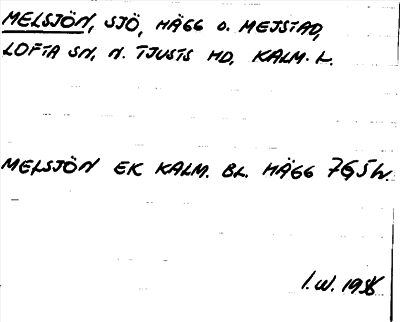 MELSJÖN, SJÖ, HÄGG O. MEJSTAD,
LOFTA SN, N. TJUSTS HD, KALM. L.
MELSJÖN EK KALM. BL. HÄGG
I.W. 19